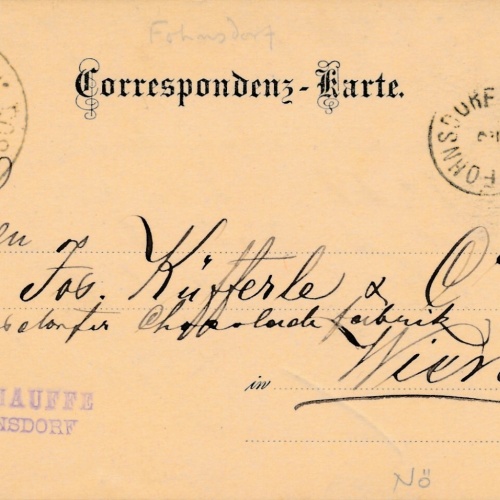 Fohnsdorf
Correspondenz-Karte.
FOHNSDORF
Jos. Küfferle & C
Chocolade fabrik
in Wien
HAUFFE
NSDORF
NÖ